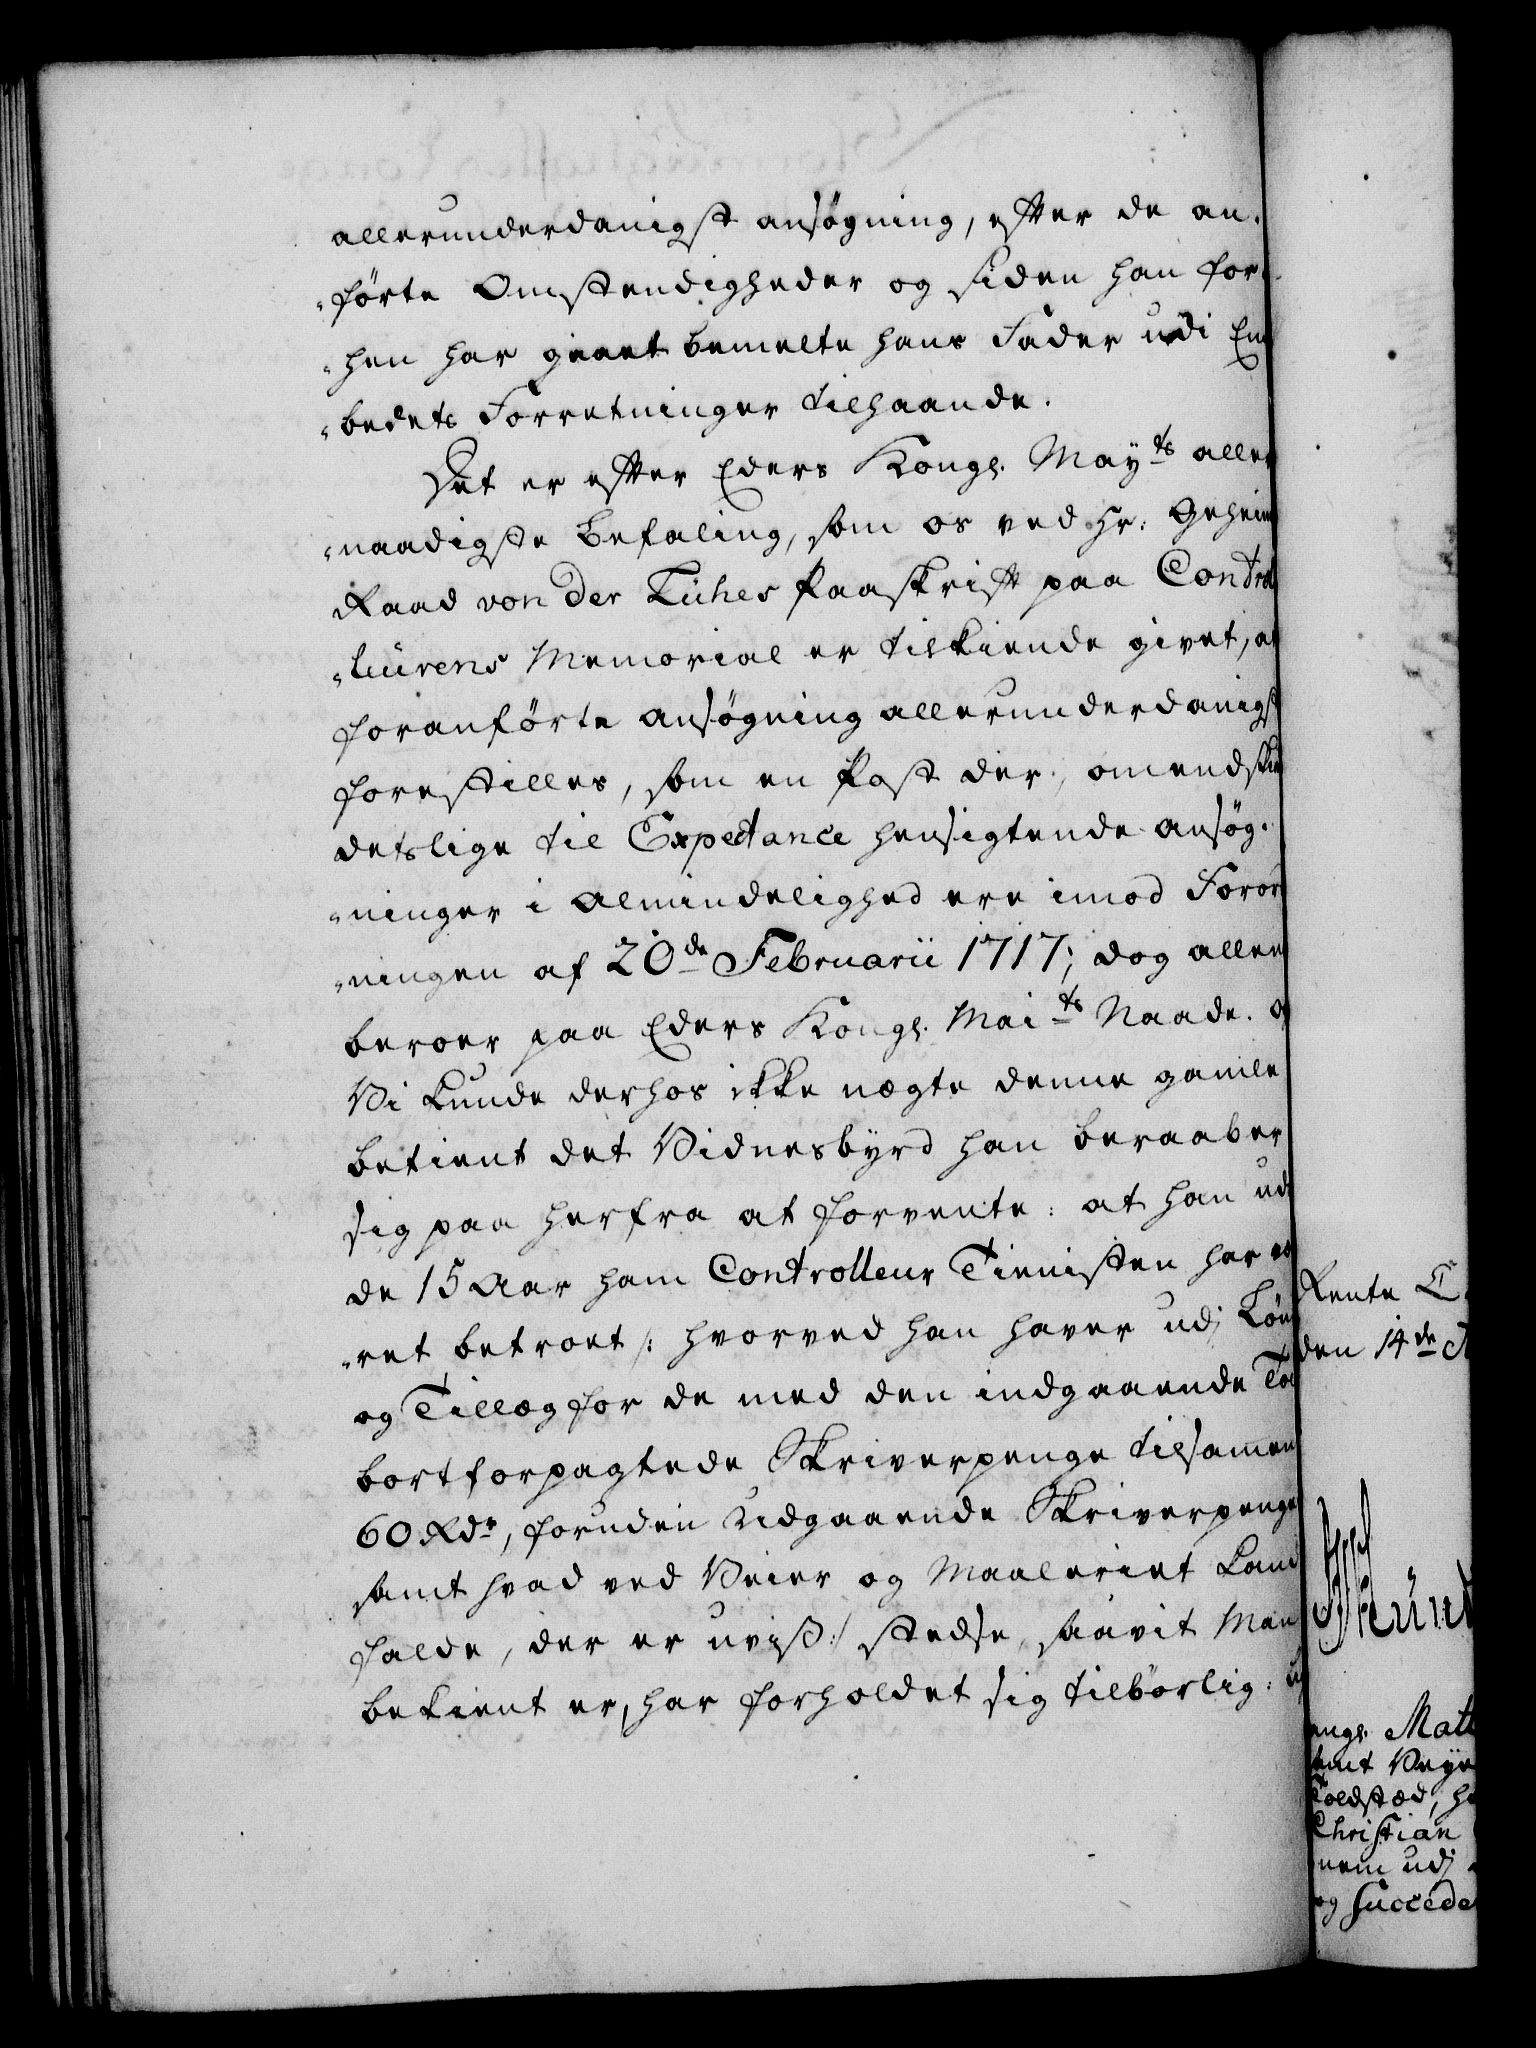 allerunderdanigst ansøgning, efter de an-
-førte Omstendigheder og siden han for-
-hen har gaaet bemelte hans Fader udi Em
-bedets Forretninger tilhaande.
Det er efter Eders Kongl. Mayts aller
-naadigste Befaling, som os ved Hr: Geheime
Raad von der Lühes Paaskrift paa Control
-leurens Memorial er tilkiende givet, at
foranførte ansøgning allerunderdanigst
forestilles, som en Post der, omendskiø
detslige til Expectance hensigtende ansøg-
-ninger i Almindelighed ere imod Foror
-ningen af 20de Februarii 1717; dog allene
beroer paa Eders Kongl. Maits Naade. og
Vi kunde derhos ikke nægte denne gamle
betient det Vidnesbyrd han beraaber
sig paa herfra at forvente: at han udi
de 15 Aar ham Controlleur Tienisten har væ
-ret betroet /: hvorved han haver udj Løn
og Tillæg for de med den indgaaende Tol
bortforpagtede Skriverpenge tilsamen
60 Rdr, foruden udgaaende Skriverpenge
samt hvad ved Veier og Maaleriet kand
falde, der er uvist :/ stedse, saavit Man
bekient er, har forholdet sig tilbørlig:
Rente C
den 14de
ongl. Matt
samt Veye
Toldstæd, h
Christian
nem udj
og Succede